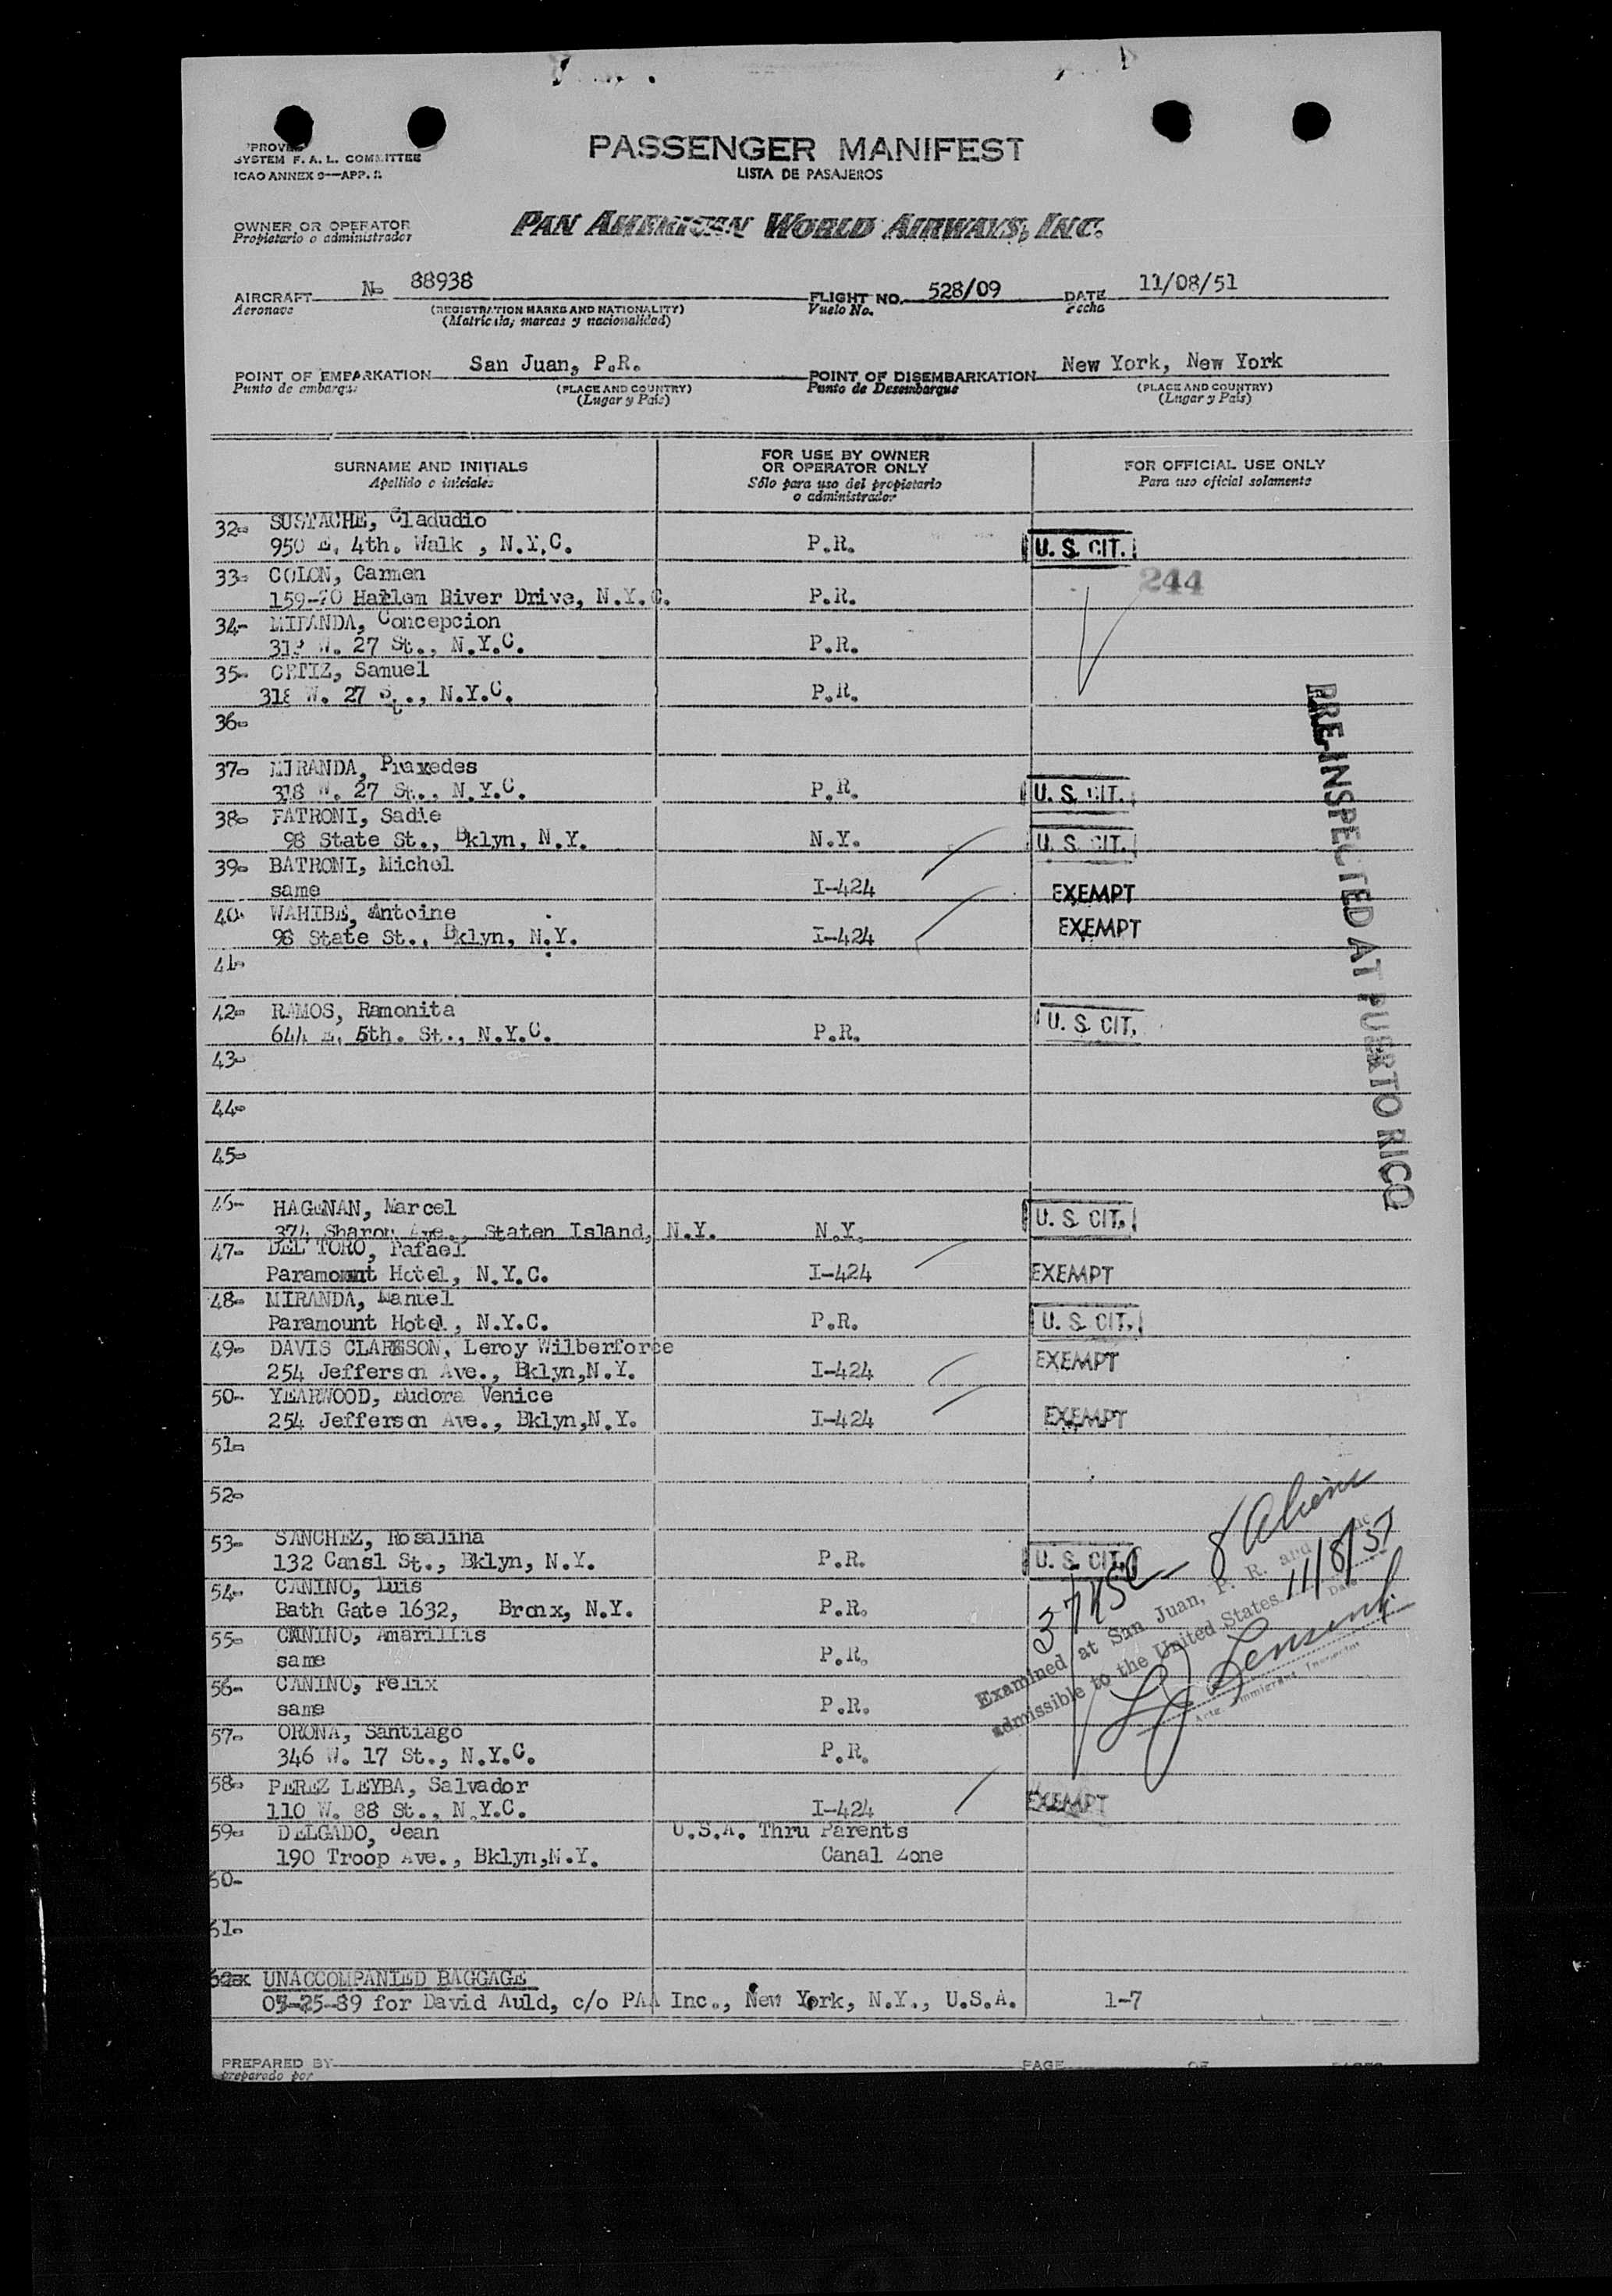 SYSTEM F. A. L. COMMITTEE
ICAO ANNEX 9—APP.
PASSENGER MANIFEST
LISTA DE PASAJEROS
OWNER OR OPERATOR
Propietario o administrador
PAN AMERICAN WORLD AIRWAYS, INC.
AIRCRAFT N- 88938
Aeronave
(REGISTRATION MARKS AND NATIONALITY)
(Matricula; marcas y nacionalidad)
FLIGHT NO. 528/09
Vuelo No.
DATE 11/08/51
Fecha
POINT OF EMBARKATION San Juan, P.R.
Punto de embarque
(PLACE AND COUNTRY)
(Lugar y País)
POINT OF DISEMBARKATION New York, New York
Punto de Desembarque
(PLACE AND COUNTRY)
(Lugar y País)
SURNAME AND INITIALS
Apellido e iniciales
FOR USE BY OWNER
OR OPERATOR ONLY
Sólo para uso del propietario
o administrador
FOR OFFICIAL USE ONLY
Para uso oficial solamente
32- SUSTACHE, Cladudio
950 E. 4th. Walk , N.Y.C. P.R. U. S. CIT.
33- COLON, Carmen 244
159-70 Harlem River Drive, N.Y.C. P.R.
34- MIRANDA, Concepcion
318 W. 27 St., N.Y.C. P.R.
35- ORTIZ, Samuel
318 W. 27 St., N.Y.C. P.R.
36-
37- MIRANDA, Praxedes
318 W. 27 St., N.Y.C. P.R. U. S. CIT.
38- FATRONI, Sadie
98 State St., Bklyn, N.Y. N.Y. U. S. CIT.
39- BATRONI, Michel
same I-424 EXEMPT
40- WAHIBE, Antoine
98 State St., Bklyn, N.Y. I-424 EXEMPT
41-
42- RAMOS, Ramonita
644 E. 5th. St., N.Y.C. P.R. U. S. CIT.
43-
44-
45-
46- HAGENAN, Marcel
374 Sharon Ave., Staten Island, N.Y. N.Y. U. S. CIT.
47- DEL TORO, Rafael
Paramount Hotel, N.Y.C. I-424 EXEMPT
48- MIRANDA, Manuel
Paramount Hotel, N.Y.C. P.R. U. S. CIT.
49- DAVIS CLARKSON, Leroy Wilberforce
254 Jefferson Ave., Bklyn,N.Y. I-424 EXEMPT
50- YEARWOOD, Eudora Venice
254 Jefferson Ave., Bklyn,N.Y. I-424 EXEMPT
51-
52-
53- SANCHEZ, Rosalina
132 Cansl St., Bklyn, N.Y. P.R. U. S. CIT.
54- CANINO, Luis
Bath Gate 1632, Bronx, N.Y. P.R.
55- CANINO, Amarillis
same P.R.
56- CANINO, Felix
same P.R.
57- ORONA, Santiago
346 W. 17 St., N.Y.C. P.R.
58- PEREZ LEYBA, Salvador
110 W. 88 St., N.Y.C. I-424 EXEMPT
59- DELGADO, Jean U.S.A. Thru Parents
190 Troop Ave., Bklyn,N.Y. Canal Zone
60-
61-
UNACCOMPANIED BAGGAGE
03-25-89 for David Auld, c/o PAA Inc., New York, N.Y., U.S.A. 1-7
PRE-INSPECTED AT PUERTO RICO
37 USC 8 Aliens
Examined at San Juan, P. R. and
admissible to the United States 11/8/51
Date
Actg. Immigrant Inspector
PREPARED BY
preparado por
PAGE OF PAGES